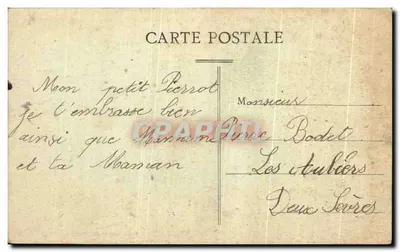 CARTE POSTALE
Mon petit Pierrot
je t'embrasse bien
ainsi que
et ta Maman
Monsieur
Pierre Bodet
Les Aubiers
Deux Sèvres